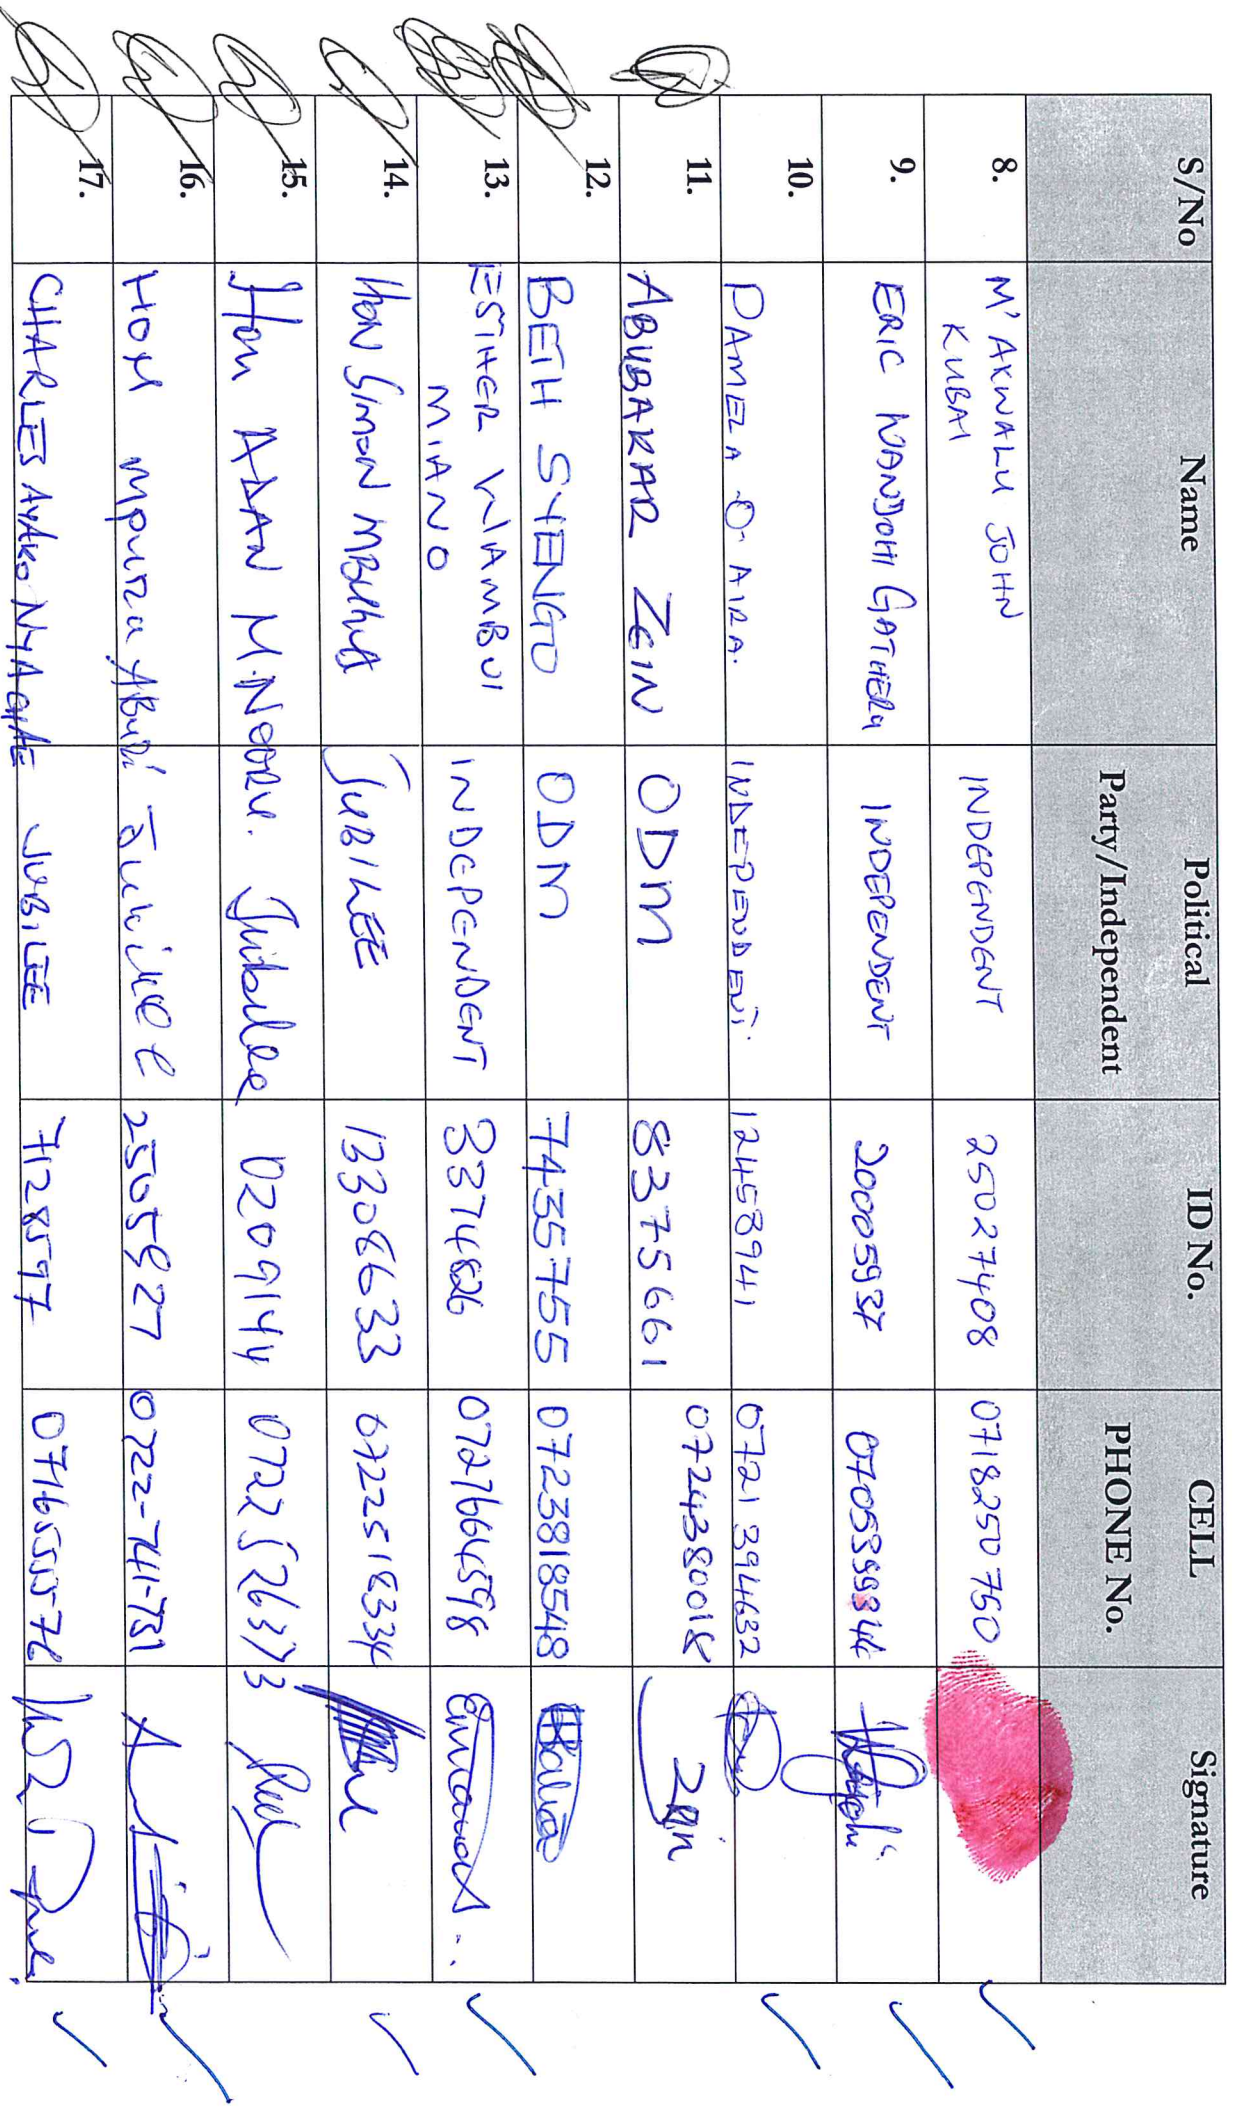 S/No Name Political Party/Independent ID No. CELL PHONE No. Signature
8. M'AKWALU JOHN KUBAI INDEPENDENT 25027408 0718250750
9. ERIC WANJOHI GATHERU INDEPENDENT 20005937
10. PAMELA O. AIRA. INDEPENDENT. 12458941 0721394632
11. ABUBAKAR ZEIN ODM 8375661 0724380018
12. BETH SYENGO ODM 74357755 0723818548
13. ESTHER WAMBUI MIANO INDEPENDENT 3374826 0727664598
14. HON SIMON MBUGUA JUBILEE 13308633 0722518334
15. Hon ADAN M. NOORU. Jubilee 0209144 0722526373
16. HON Mpuru Aburi Jubilee 22505827 0722-741-731
17. CHARLES AYAKO NYACHAE JUBILEE 7128597